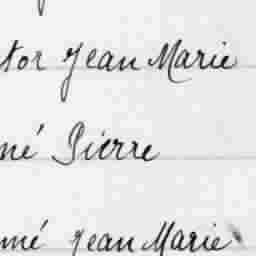 tor Jean Marie
né Pierre
mé Jean Marie